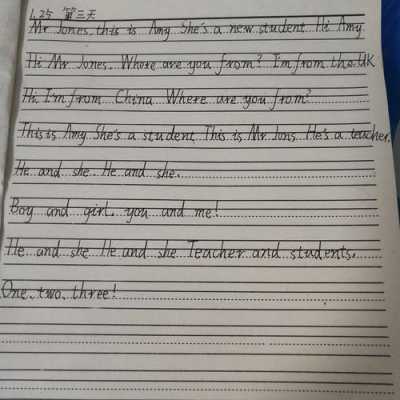 1.25 第三天
Mr Jones, this is Amy She's a new student Hi Amy
Hi Mr Jones. Where are you from? I'm from the UK
Hi, I'm from China Where are you from?
This is Amy She's a student This is Mr Jons. He's a teacher.
He and she. He and she.
Boy and girl. you and me!
He and she He and she Teacher and students.
One, two, three!